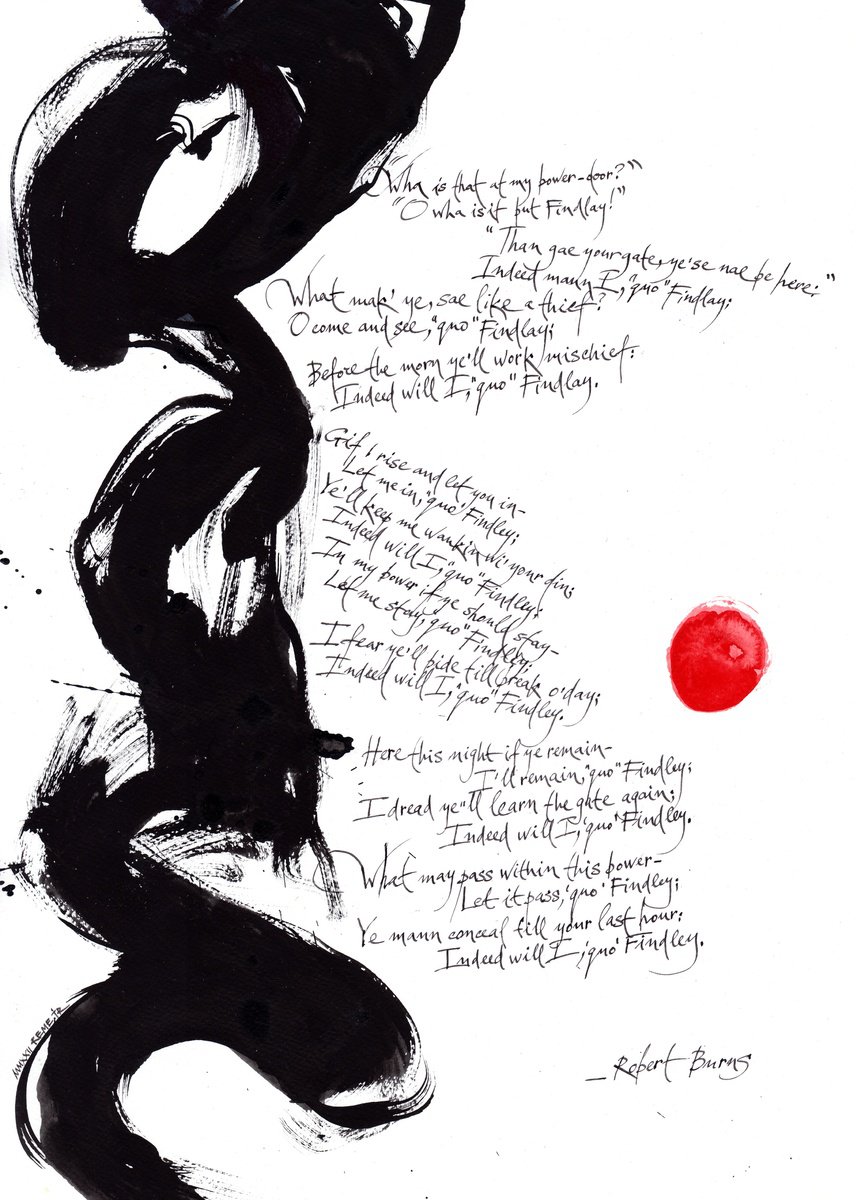 "Wha is that at my bower-door?"
"O wha is it but Findlay!"
"Than gae your gate, ye'se nae be here:"
Indeed maun I," quo" Findlay;
What mak' ye, sae like a thief?
O come and see," quo" Findlay;
Before the morn ye'll work mischief:
Indeed will I," quo" Findlay.
Gif I rise and let you in-
Let me in," quo' Findley;
Ye'll keep me waukin wi' your din;
Indeed will I," quo" Findley;
In my bower if ye should stay-
Let me stay," quo" Findley;
I fear ye'll bide till break o' day;
Indeed will I," quo" Findley.
Here this night if ye remain-
I'll remain," quo" Findley;
I dread ye"ll learn the gate again;
Indeed will I," quo' Findley.
What may pass within this bower-
Let it pass,' quo' Findley;
Ye maun conceal till your last hour:
Indeed will I,' quo' Findley.
_ Robert Burns